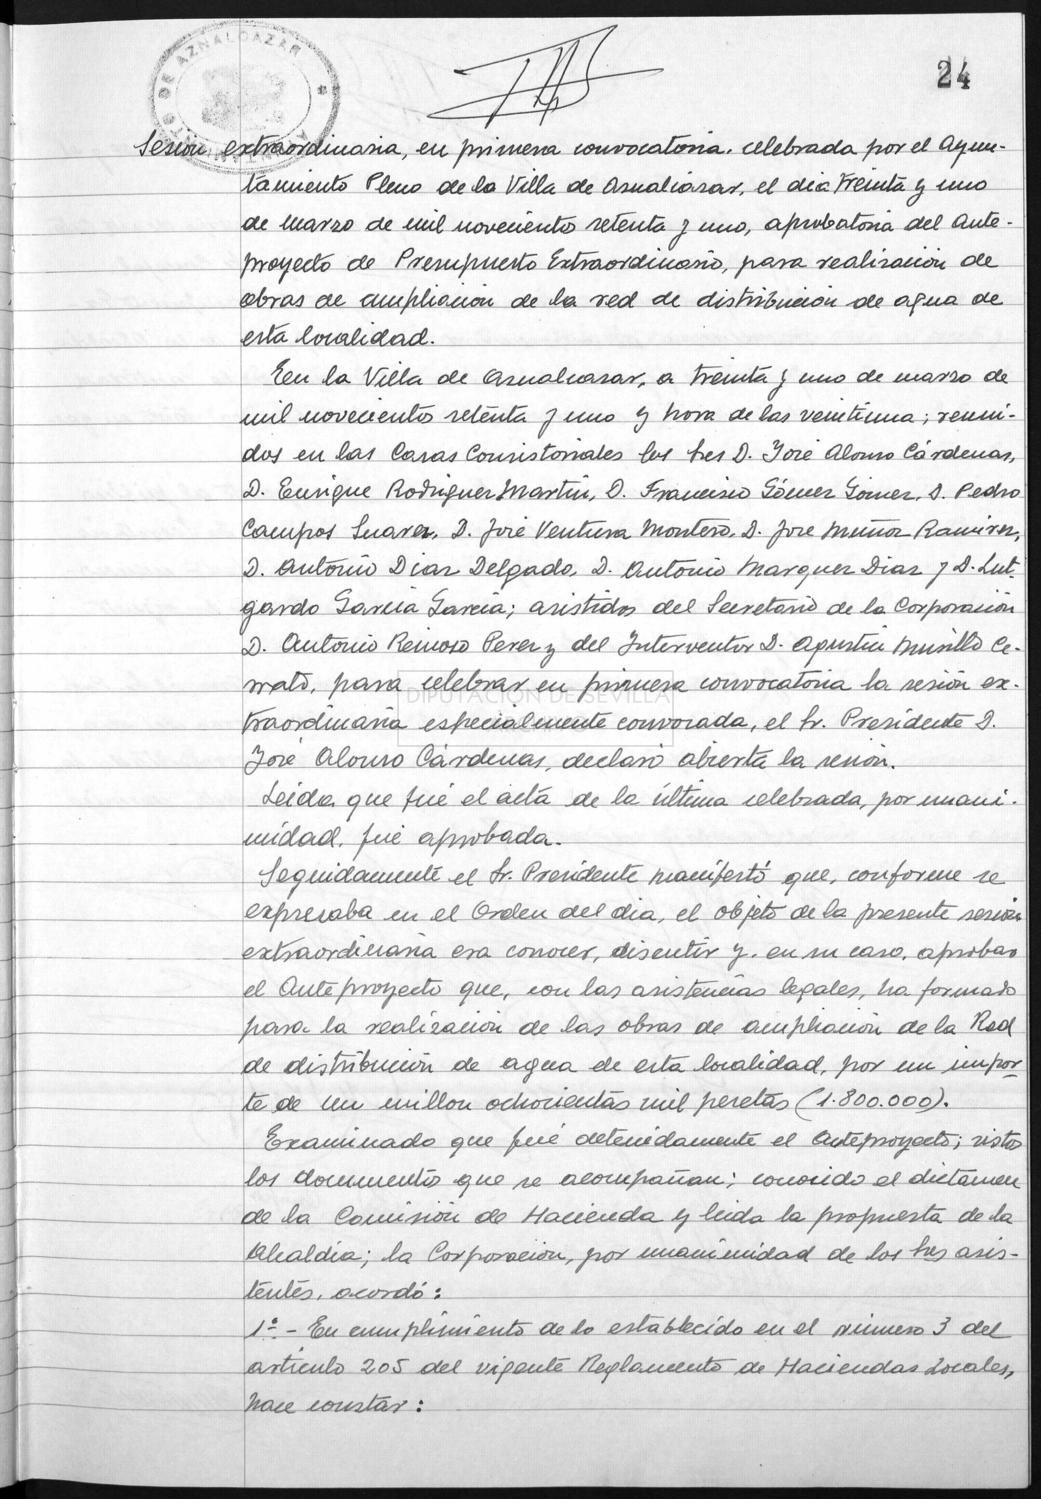 AYUNTAMIENTO DE AZNALCAZAR
24
Sesión, extraordinaria, en primera convocatoria, celebrada por el Ayun-
tamiento Pleno de la Villa de Aznalcazar, el día treinta y uno
de marzo de mil noveciento setenta y uno, aprobatoria del Ante-
proyecto de Presupuesto Extraordinario, para realización de
obras de ampliación de la red de distribución de agua de
esta localidad.
En la Villa de Aznalcazar, a treinta y uno de marzo de
mil noveciento setenta y uno y hora de las veintiuna; reuni-
dos en las Casas Consistoriales los Sres D. José Alonso Cárdenas,
D. Enrique Rodriguez Martín, D. Francisco Gómez Gómez, D. Pedro
Campos Suarez, D. José Ventura Montero, D. Jose Muñoz Ramirez,
D. Antonio Diaz Delgado, D. Antonio Marquez Diaz y D. Lut-
gardo García García; asistidos del Secretario de la Corporación
D. Antonio Reinoso Perez y del Interventor D. Agustín Murillo Ce-
rrato, para celebrar en primera convocatoria la sesión ex-
DIPUTACIÓN DE SEVILLA
traordinaria especialmente convocada, el Sr. Presidente D.
José Alonso Cárdenas, declaró abierta la sesión.
Leida que fué el acta de la última celebrada, por unani-
midad, fué aprobada.
Seguidamente el Sr. Presidente manifestó que, conforme se
expresaba en el Orden del dia, el objeto de la presente sesión
extraordinaria era conocer, discutir y, en su caso, aprobar
el Anteproyecto que, con las asistencias legales, ha formado
para la realización de las obras de ampliación de la Red
de distribución de agua de esta localidad, por un impor-
te de un millon ochocientas mil pesetas (1.800.000).
Examinado que fué detenidamente el Anteproyecto; vistos
los documentos que se acompañan; conocido el dictámen
de la Comisión de Hacienda y leida la propuesta de la
Alcaldía; la Corporación, por unanimidad de los Sres asis-
tentes, acordó:
1º.- En cumplimiento de lo establecido en el número 3 del
artículo 205 del vigente Reglamento de Haciendas Locales,
hace constar: